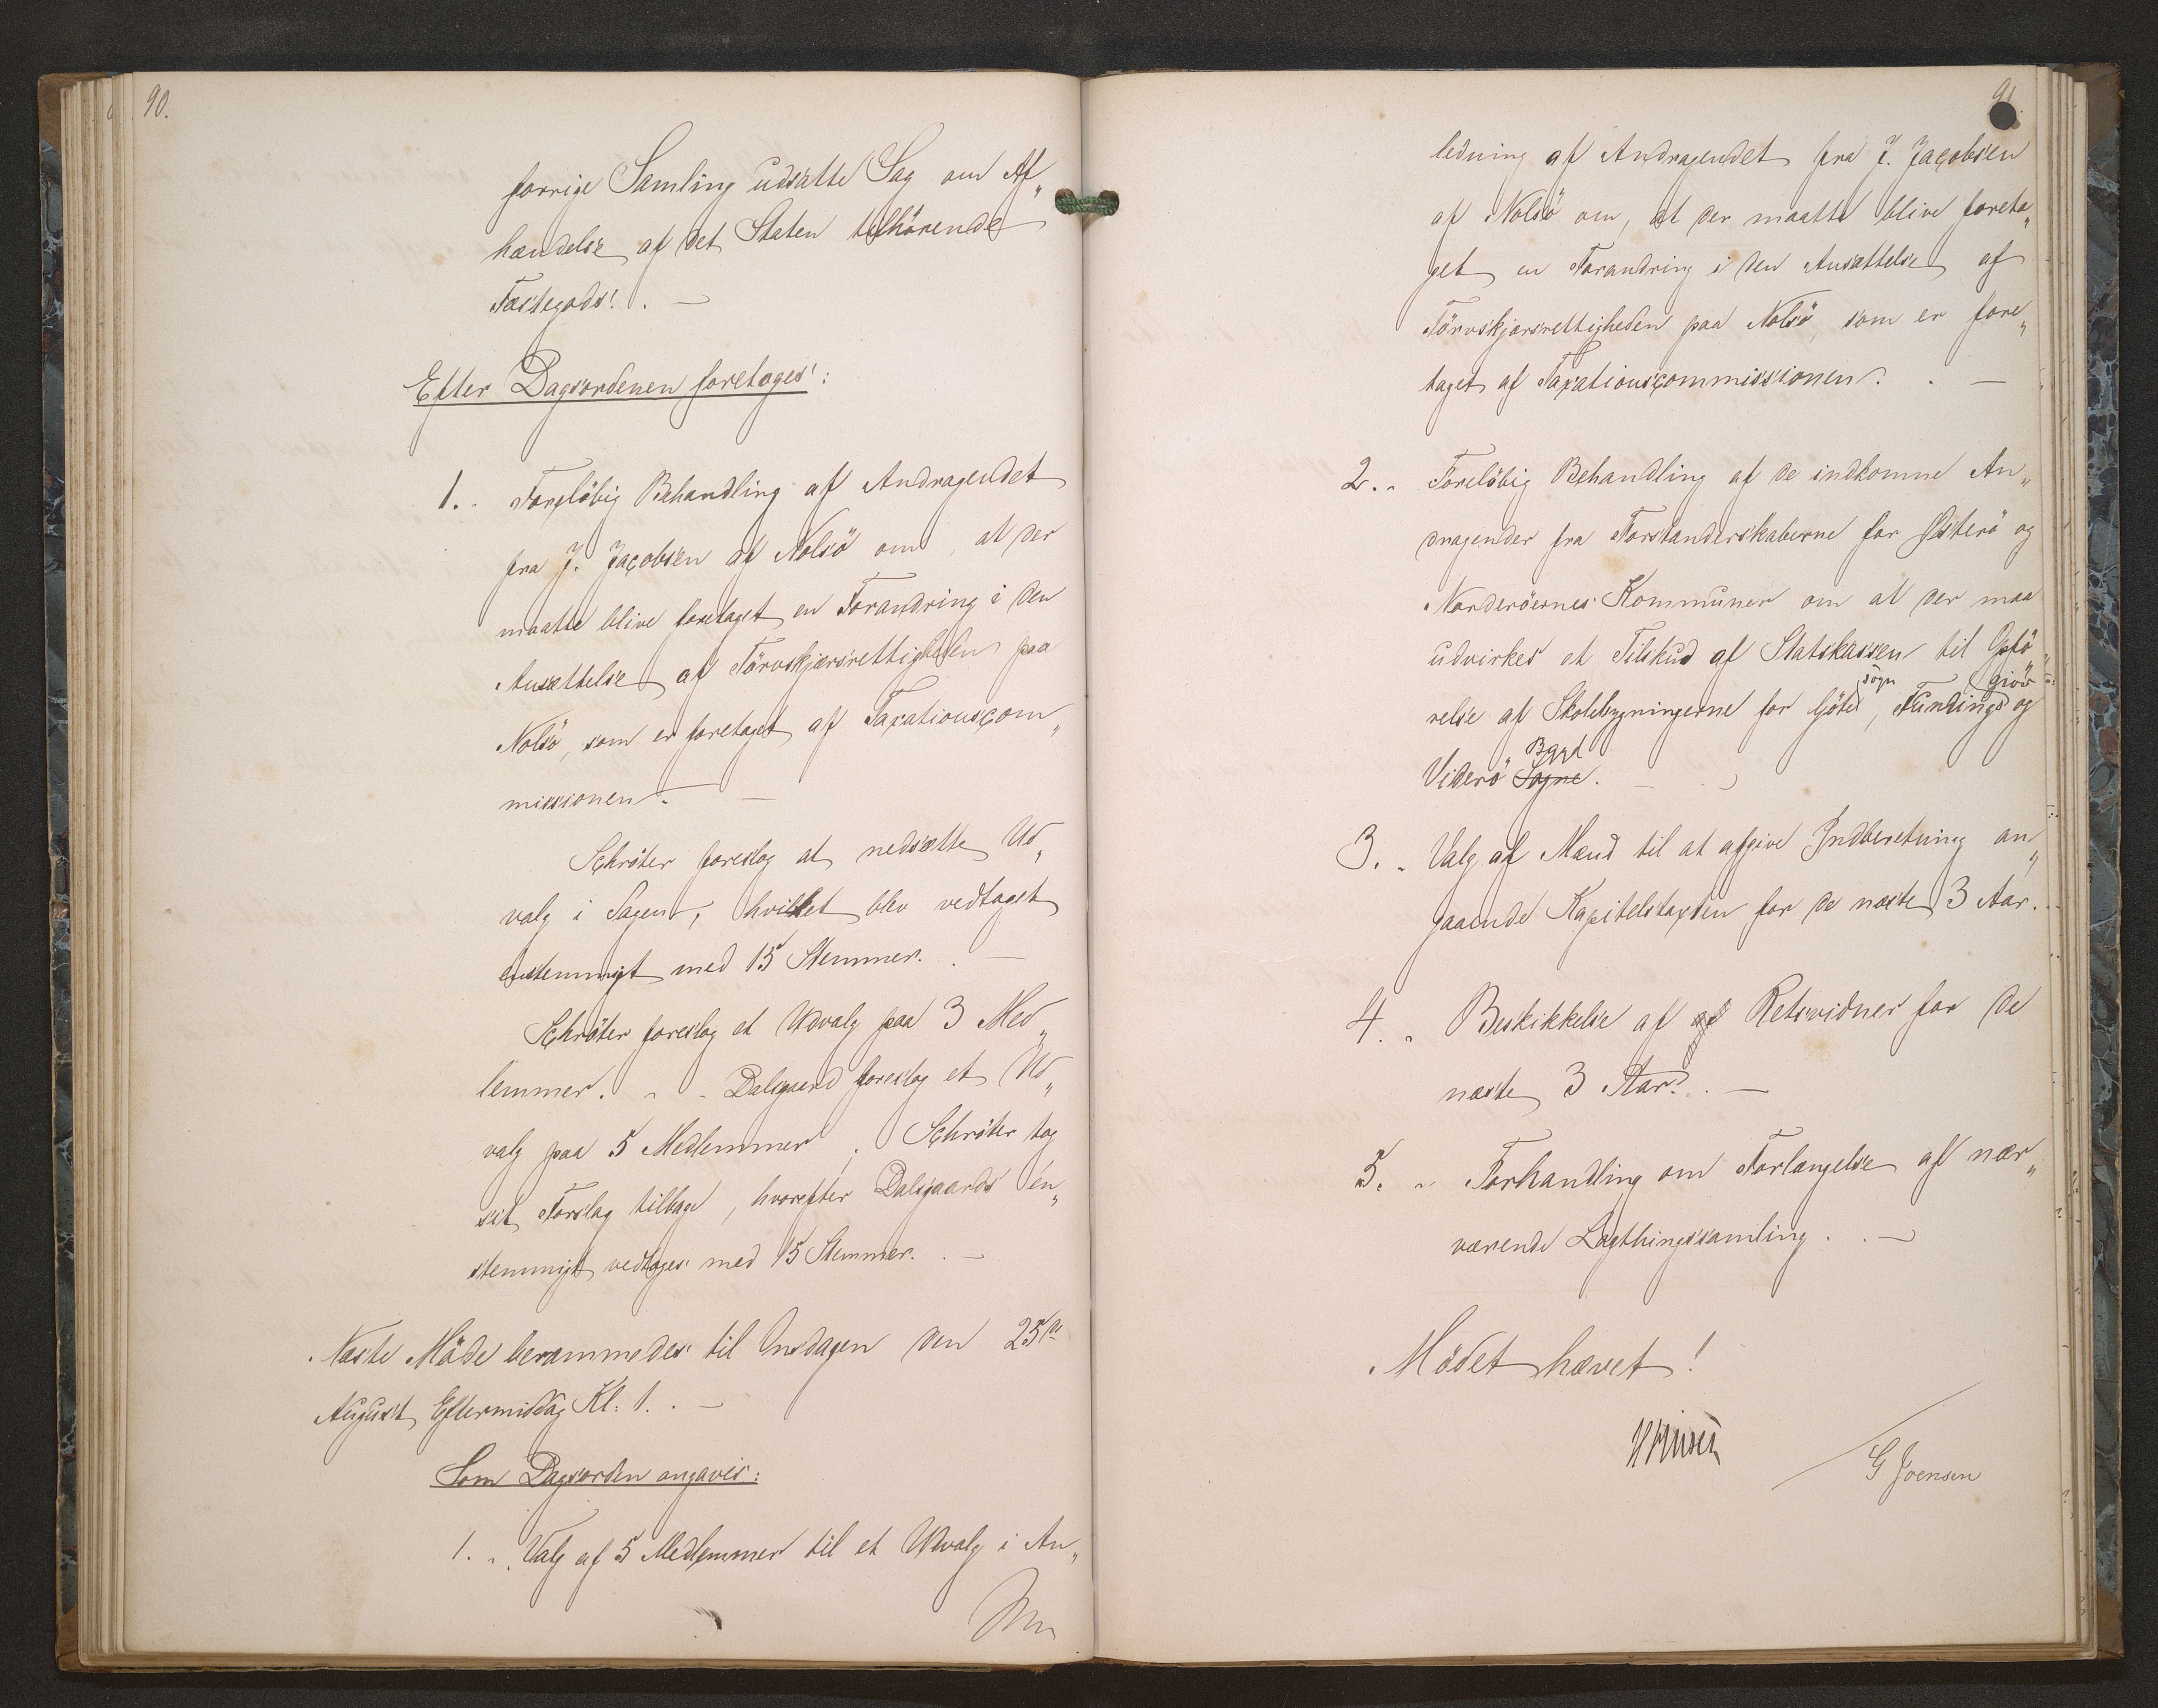 90.
forrige Samling udsatte Sag om Af„
hændelse af det Staten tilhörende
Fæstegods! . —
Efter Dagsordenen foretoges:
1. . Foreløbig Behandling af Andragendet
fra J. Jacobsen af Nolsö om, at der
maatte blive foretaget en Forandring i den
Ansættelse af Törvskjærsrettigheden paa
Nolsö, som er foretaget af Taxationscom„
missionen. —
Schröter foreslog at nedsætte Ud„
valg i Sagen, hvilket blev vedtaget
enstemmigt med 15 Stemmer. . —
Schröter foreslog et Udvalg paa 3 Med„
lemmer. - - Dalsgaard foreslog et Ud„
valg paa 5 Medlemmer. Schröter tog
sit Forslag tilbage, hvorefter Dalsgaards en„
stemmigt vedtoges med 15 Stemmer. . —
Næste Möde berammedes til Onsdagen den 25de
August Eftermiddag Kl: 1. . —
Som Dagsorden angaves:
1. . Valg af 5 Medlemmer til et Udvalg i An„
91.
ledning af Andragendet fra J. Jacobsen
af Nolsö om, at der maatte blive foreta„
get en Forandring i den Ansættelse af
Törvskjærsrettigheden paa Nolsö, som er fore„
taget af Taxationscommissionen. . —
2. . Foreløbig Behandling af de indkomne An„
dragender fra Forstanderskaberne for Österö og
Norderöernes Kommuner om at der maa
udvirkes et Tilskud af Statskassen til Opfö„
sogn giöv
relse af Skolebygningerne for Göte, Fundings og
Bygd
Viderö Sogne. —
3. . Valg af Mænd til at afgive Indberetning an„
gaaende Kapitelstaxten for de næste 3 Aar.
4. . Beskikkelse af af Retsvidner for de
næste 3 Aar. . —
5. . Forhandling om Forlængelse af nær„
værende Lagthingssamling. . —
Mödet hævet!
G Joensen